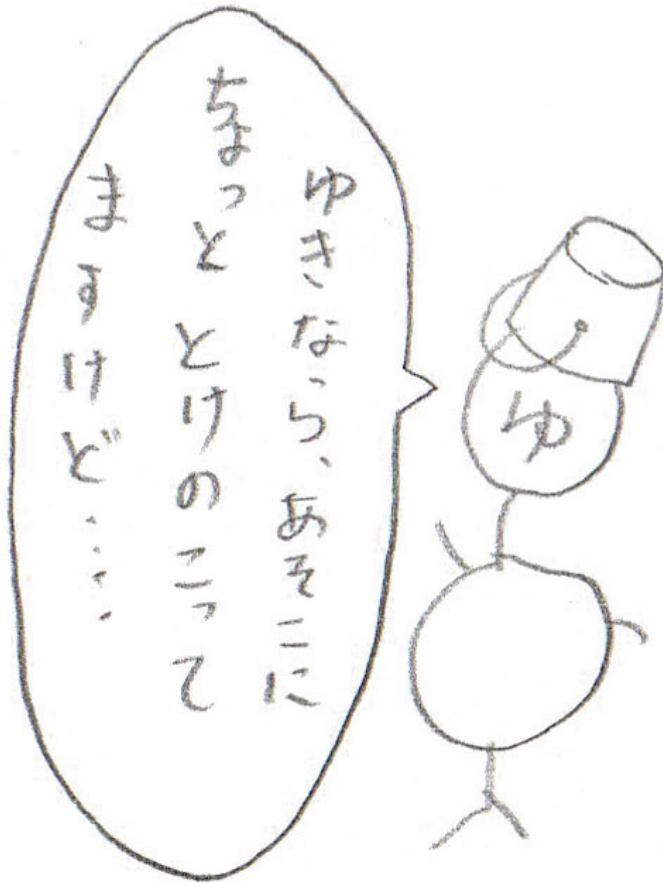 ゆきなら、あそこに
ちょっと とけのこって
ますけど・・・・
ゆ